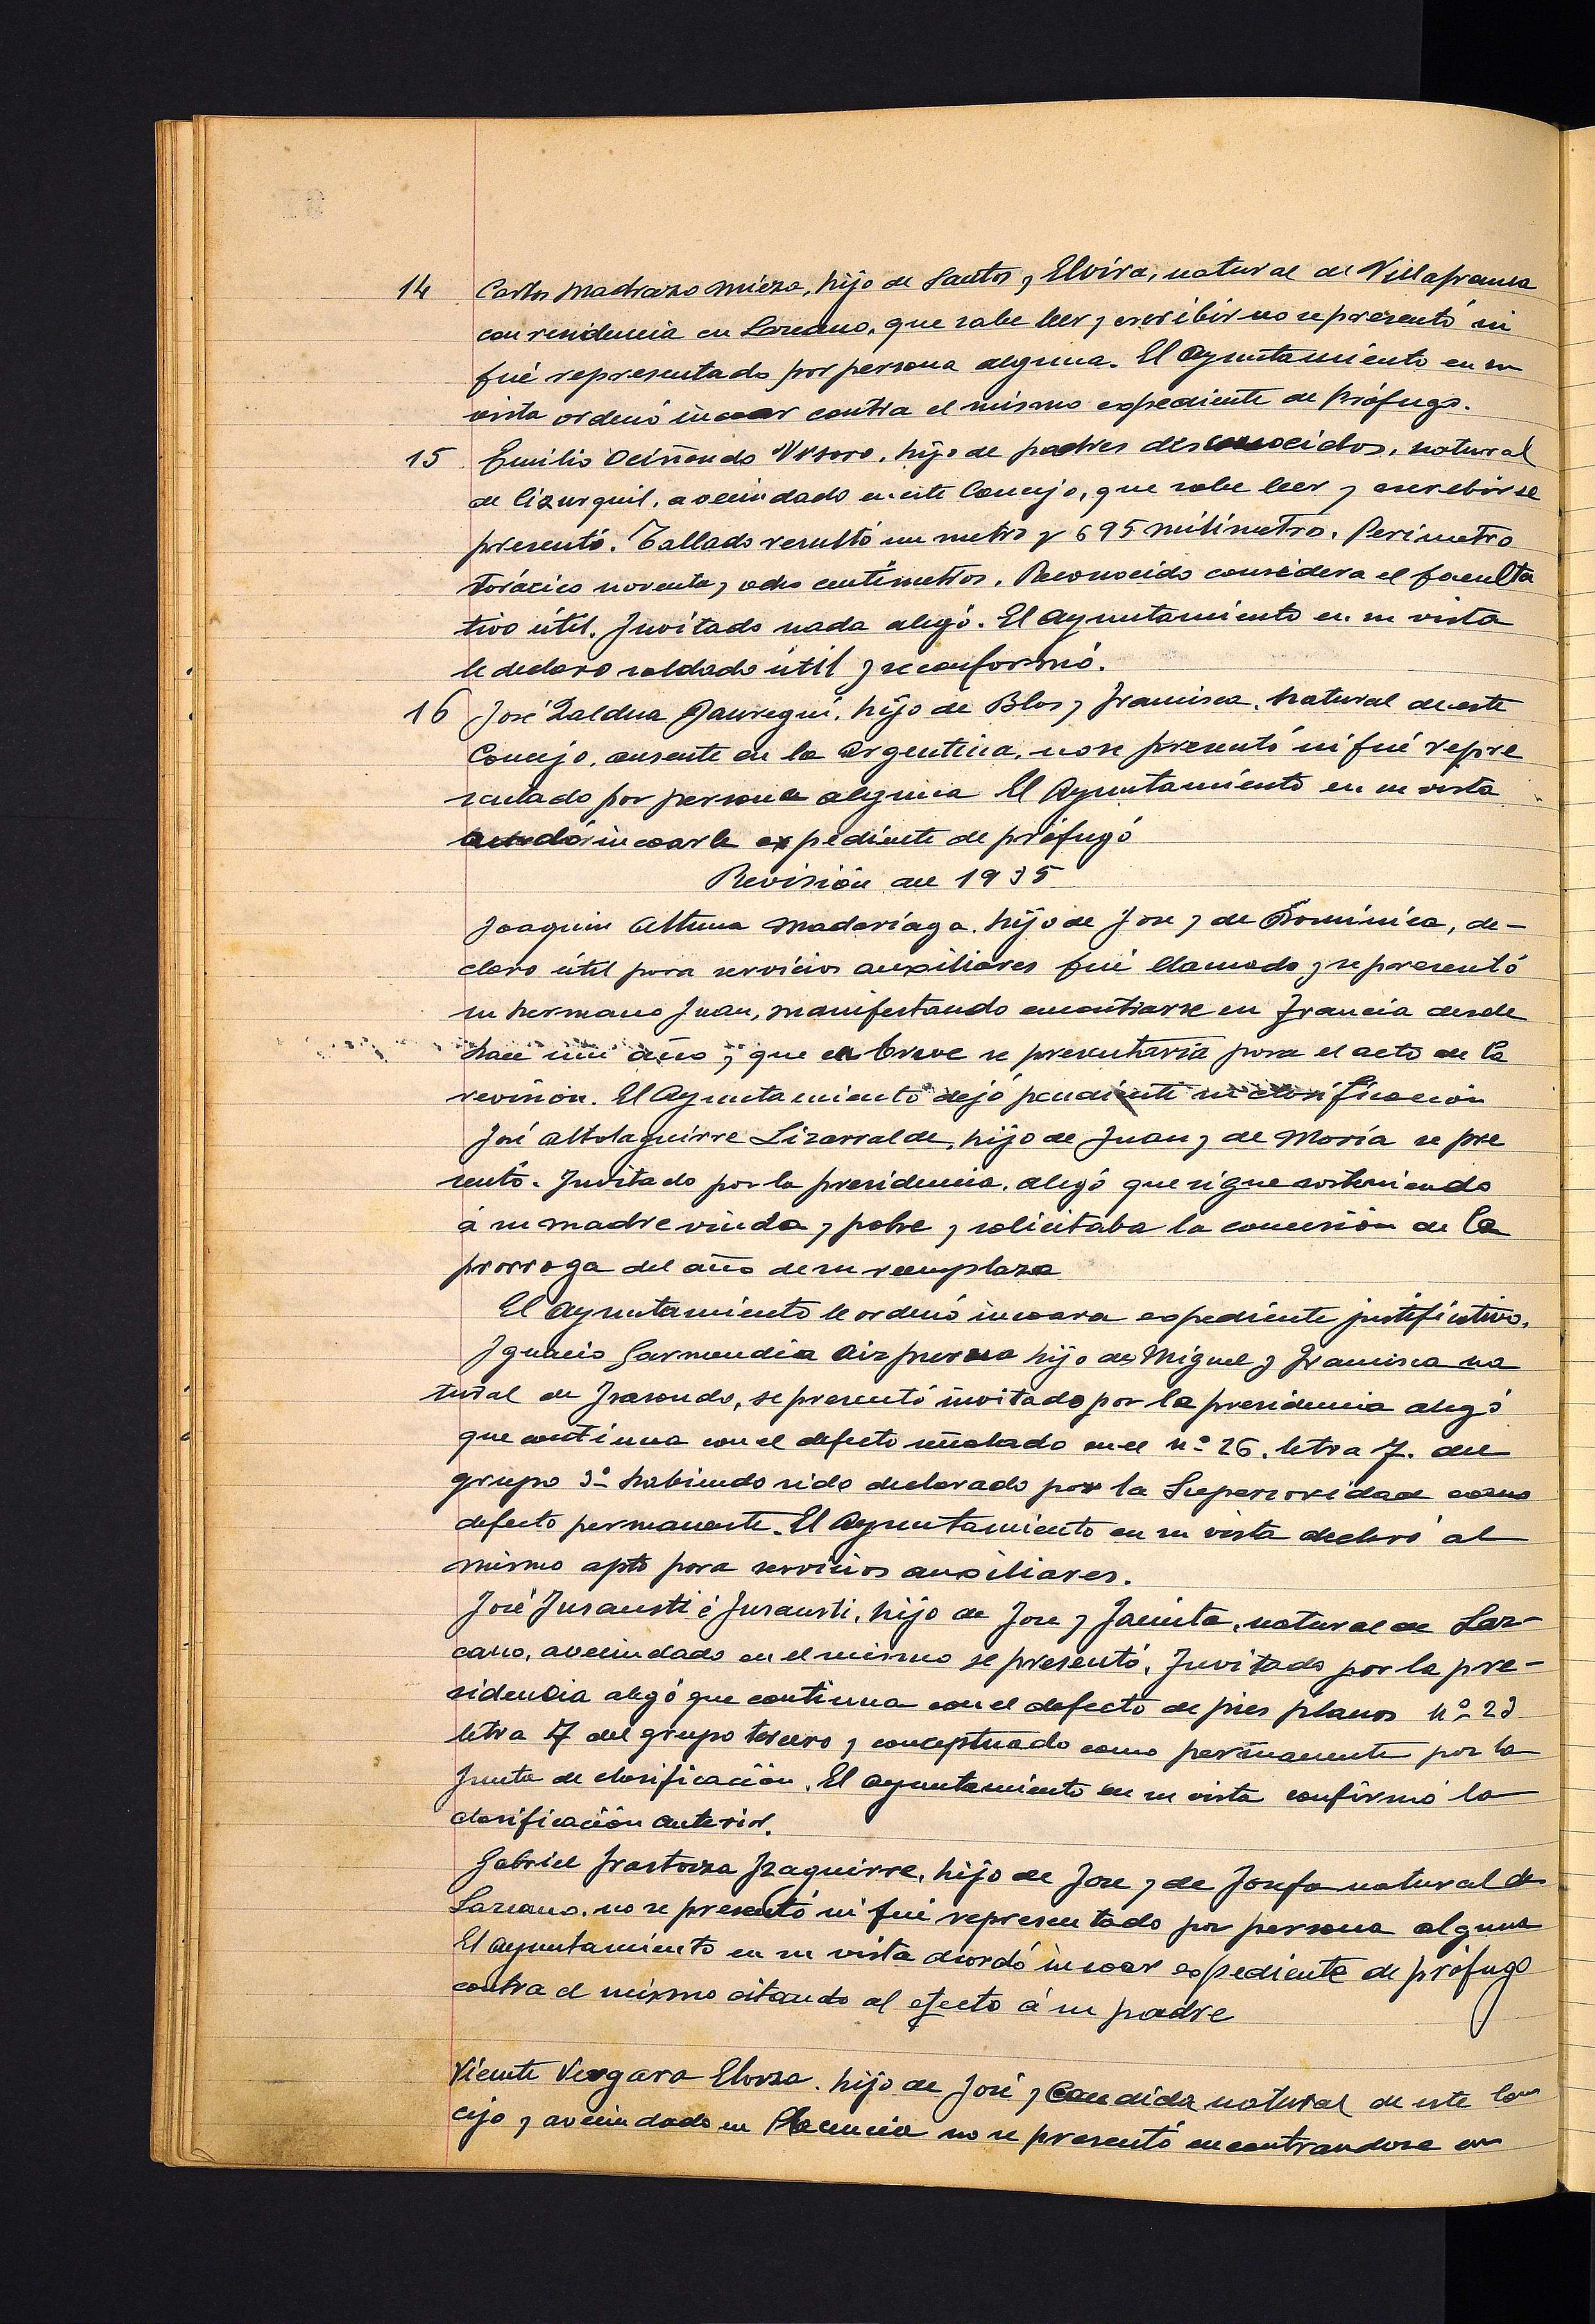 14 Carlos Madrazo Mieza, hijo de Santos y Elvira, natural de Villafranca
con residencia en Lazcano, que sabe leer y escribir no se presentó ni
fué representado por persona alguna. El Ayuntamiento en su
vista ordenó incoar contra el mismo expediente de prófugo.
15 Emilio Deiñondo, hijo de padres desconocidos, natural
de Cizurquil, avecindado en este Concejo, que sabe leer y escrebir se
presentó. Tallado resultó un metro y 695 milimetro. Perimetro
torácico noventa y ocho centimetros. Reconocido considera el faculta
tivo útil. Invitado nada alegó. El Ayuntamiento en su vista
le declaro soldado útil y se conformó.
16 José Zaldua Jauregui, hijo de Blas y Francisca, natural de este
Concejo, ausente en la Argentina, no se presentó ni fué repre
sentado por persona alguna El Ayuntamiento en su vista
incoarle expediente de prófugó
Revisión de 1935
Joaquin Altuna Madariaga, hijo de Jose y de Dominica, de-
claro útil para servicios auxiliares fué llamado y se presentó
su hermano Juan, manifestando encontrarse en Francia desde
hace un año y que en breve se presentaria para el acto de la
revision. El Ayuntamiento dejó pendiente su clasificación
José Altolaguirre Lizarralde, hijo de Juan y de Maria se pre
sentó. Invitado por la presidencia, alegó que sigue sosteniendo
á su madre viuda y pobre y solicitaba la concesión de la
prorroga del año de su reemplazo
El Ayuntamiento le ordenó incoara expediente justificativo.
Ignacio Garmendia Aizpurua hijo de Miguel y Francisca na
tural de, se presentó invitado por la presidencia alegó
que continua con el defecto señalado en el nº 26. letra 7. del
grupo 3º habiendo sido declarado por la Superioridad como
defecto permanente. El Ayuntamiento en su vista declaró al
mismo apto para servicios auxiliares.
José Insausti é Insausti, hijo de Jose y Jacinta, natural de Laz-
cano, avecindado en el mismo se presentó, Invitado por la pre-
sidencia alegó que continua con el defecto de pies planos nº 23
letra 7 del grupo tercero y conceptuado como permanente por la
Junta de clasificación. El Ayuntamiento en su vista confirmó la
clasificación anterior.
Gabriel Irastorza Izaguirre, hijo de Jose y de Josefa natural de
Lazcano, no se presentó ni fué representado por persona alguna
El Ayuntamiento en su vista acordó incoar expediente de prófugo
contra el mismo citando al efecto á su padre
Vicente Vergara Elorza, hijo de José y Candida natural de este Con
cejo y avecindado en Placencia no se presentó encontrandose en